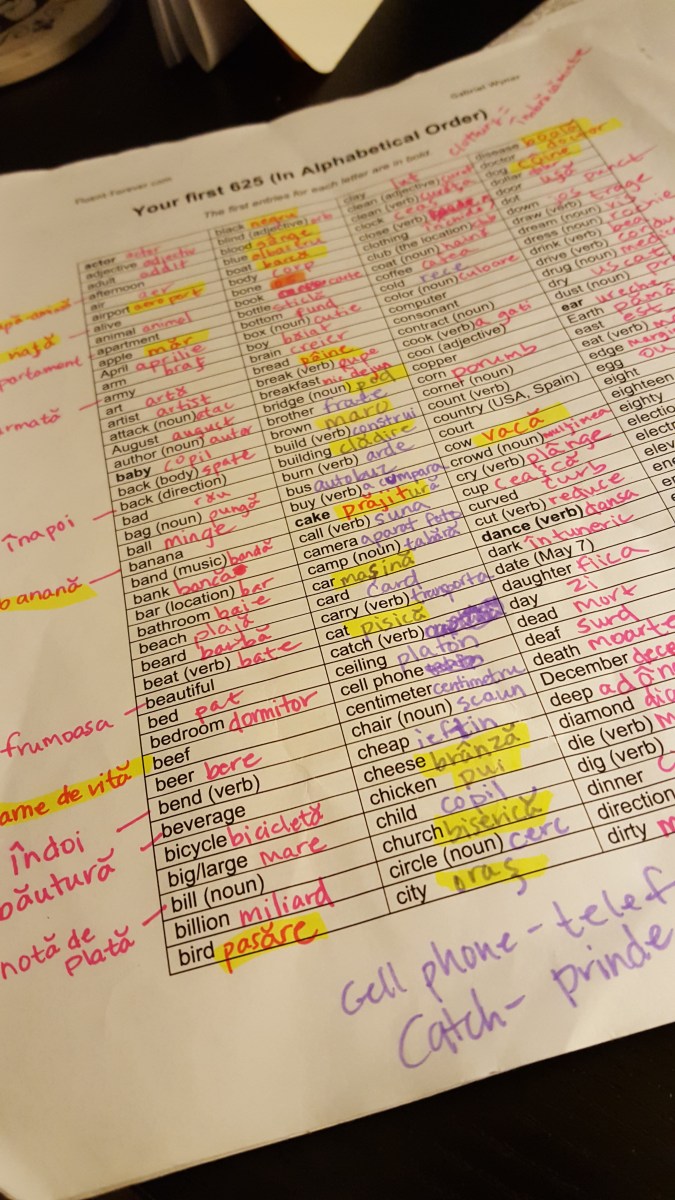 Gabriel Wyner
Fluent-Forever.com
Your first 625 (In Alphabetical Order)
The first entries for each letter are in bold
actor actor
adjective adjectiv
adult adult
afternoon
air aer
airport aeroport
alive
animal animal
apartment
apple măr
April aprilie
arm braț
army
art artă
artist artist
attack (noun) atac
August august
author (noun) autor
baby copil
back (body) spate
back (direction)
înapoi
bad rău
bag (noun) pungă
ball minge
banana
banană
band (music) bandă
bank bancă
bar (location) bar
bathroom baie
beach plajă
beard barbă
beat (verb) bate
beautiful
frumoasa
bed pat
bedroom dormitor
beef
carne de vită
beer bere
bend (verb)
îndoi
beverage
băutură
bicycle bicicletă
big/large mare
bill (noun)
notă de
plată
billion miliard
bird pasăre
black negru
blind (adjective) orb
blood sânge
blue albastru
boat barcă
body corp
bone
book carte
bottle sticlă
bottom fund
box (noun) cutie
boy băiat
brain creier
bread pâine
break (verb) rupe
breakfast mic dejun
bridge (noun) pod
brother frate
brown maro
build (verb) construi
building clădire
burn (verb) arde
bus autobuz
buy (verb) a cumpara
cake prăjitură
call (verb) suna
camera aparat foto
camp (noun) tabără
car mașină
card card
carry (verb) transporta
cat pisică
catch (verb)
ceiling platon
cell phone
centimeter centimetru
chair (noun) scaun
cheap ieftin
cheese brânză
chicken pui
child copil
church biserică
circle (noun) cerc
city oraș
clay lut
clean (adjective) curat
clean (verb)
clock
close (verb)
clothing
club (the location)
coat (noun) haină
coffee
cold rece
color (noun) culoare
computer
consonant
contract (noun)
cook (verb) a gati
cool (adjective)
copper
corn porumb
corner (noun)
count (verb)
country (USA, Spain)
court
cow vacă
crowd (noun) mulțimea
cry (verb) plânge
cup ceașcă
curved curb
cut (verb) reduce
dance (verb) dansa
dark întuneric
date (May 7)
daughter fiica
day zi
dead mort
deaf surd
death moarte
December
deep
diamond
die (verb)
dig (verb)
dinner
direction
dirty
disease boală
doctor doctor
dog câine
dollar
door ușă
dot punct
down jos
draw (verb) trage
dream (noun) vis
dress (noun)
drink (verb)
drive (verb)
drug (noun)
dry uscat
dust (noun)
ear ureche
Earth
east est
eat (verb)
edge
egg ou
eight
eighteen
eighty
Cell phone -
Catch - prinde